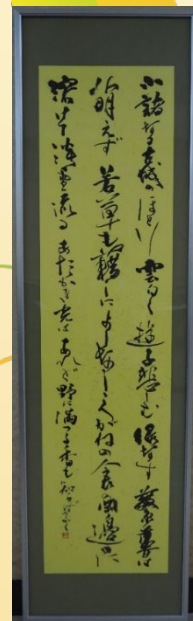 小諸なる古城のほとり 雲白く 遊子悲しむ 緑なす 繁蔞は
萌えず 若草も藉くによしなし しろがねの衾の岡邊 日に
溶けて 淡雪流る あたたかき光は あれど野に満つる香も知らず